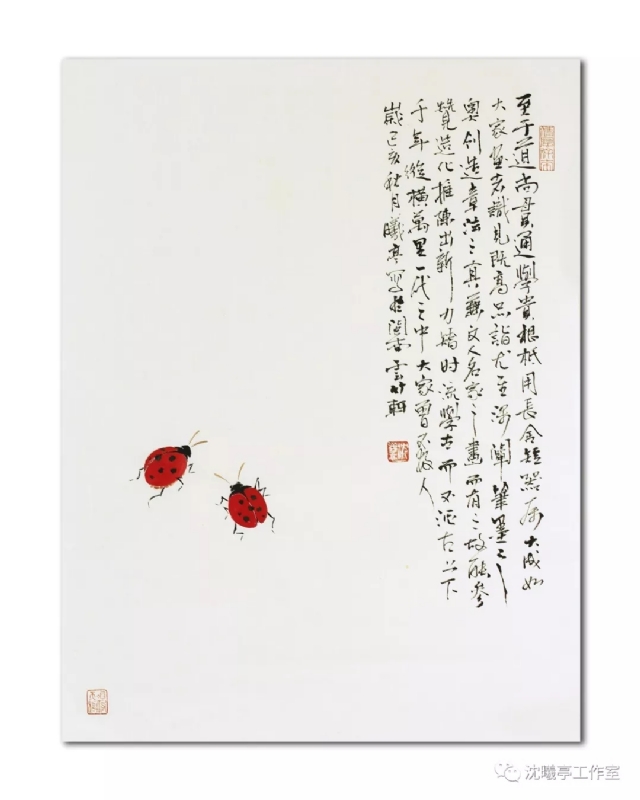 至于道尚貫通學貴根柢用長舍短器属大成如
大家畫者識見既高品詣尤至深闡筆墨之
奥創造章法之真兼文人名家之畫而有之故能參
贊造化推陳出新力矯时流學古而不泥古上下
千年縱橫萬里一代之中大家曾不数人
歲己亥秋月曦亭寫於閩雲竹軒
沈曦亭工作室